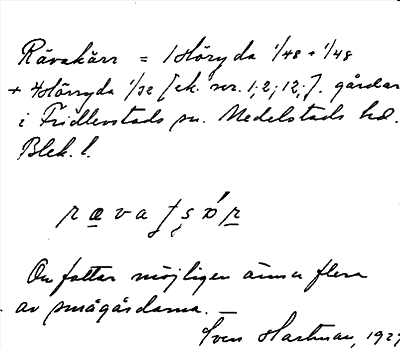 Rävakärr = 1 Höryda 1/48 + 1/48
+ 4 Hörryda 1/32 [ek. nr. 1; 2; 12;]. gårdar
i Fridlevstads sn. Medelstads hd.
Blek. l.
Omfattar möjligen ännu flera
av smågårdarna. —
Sven Hartman, 1927